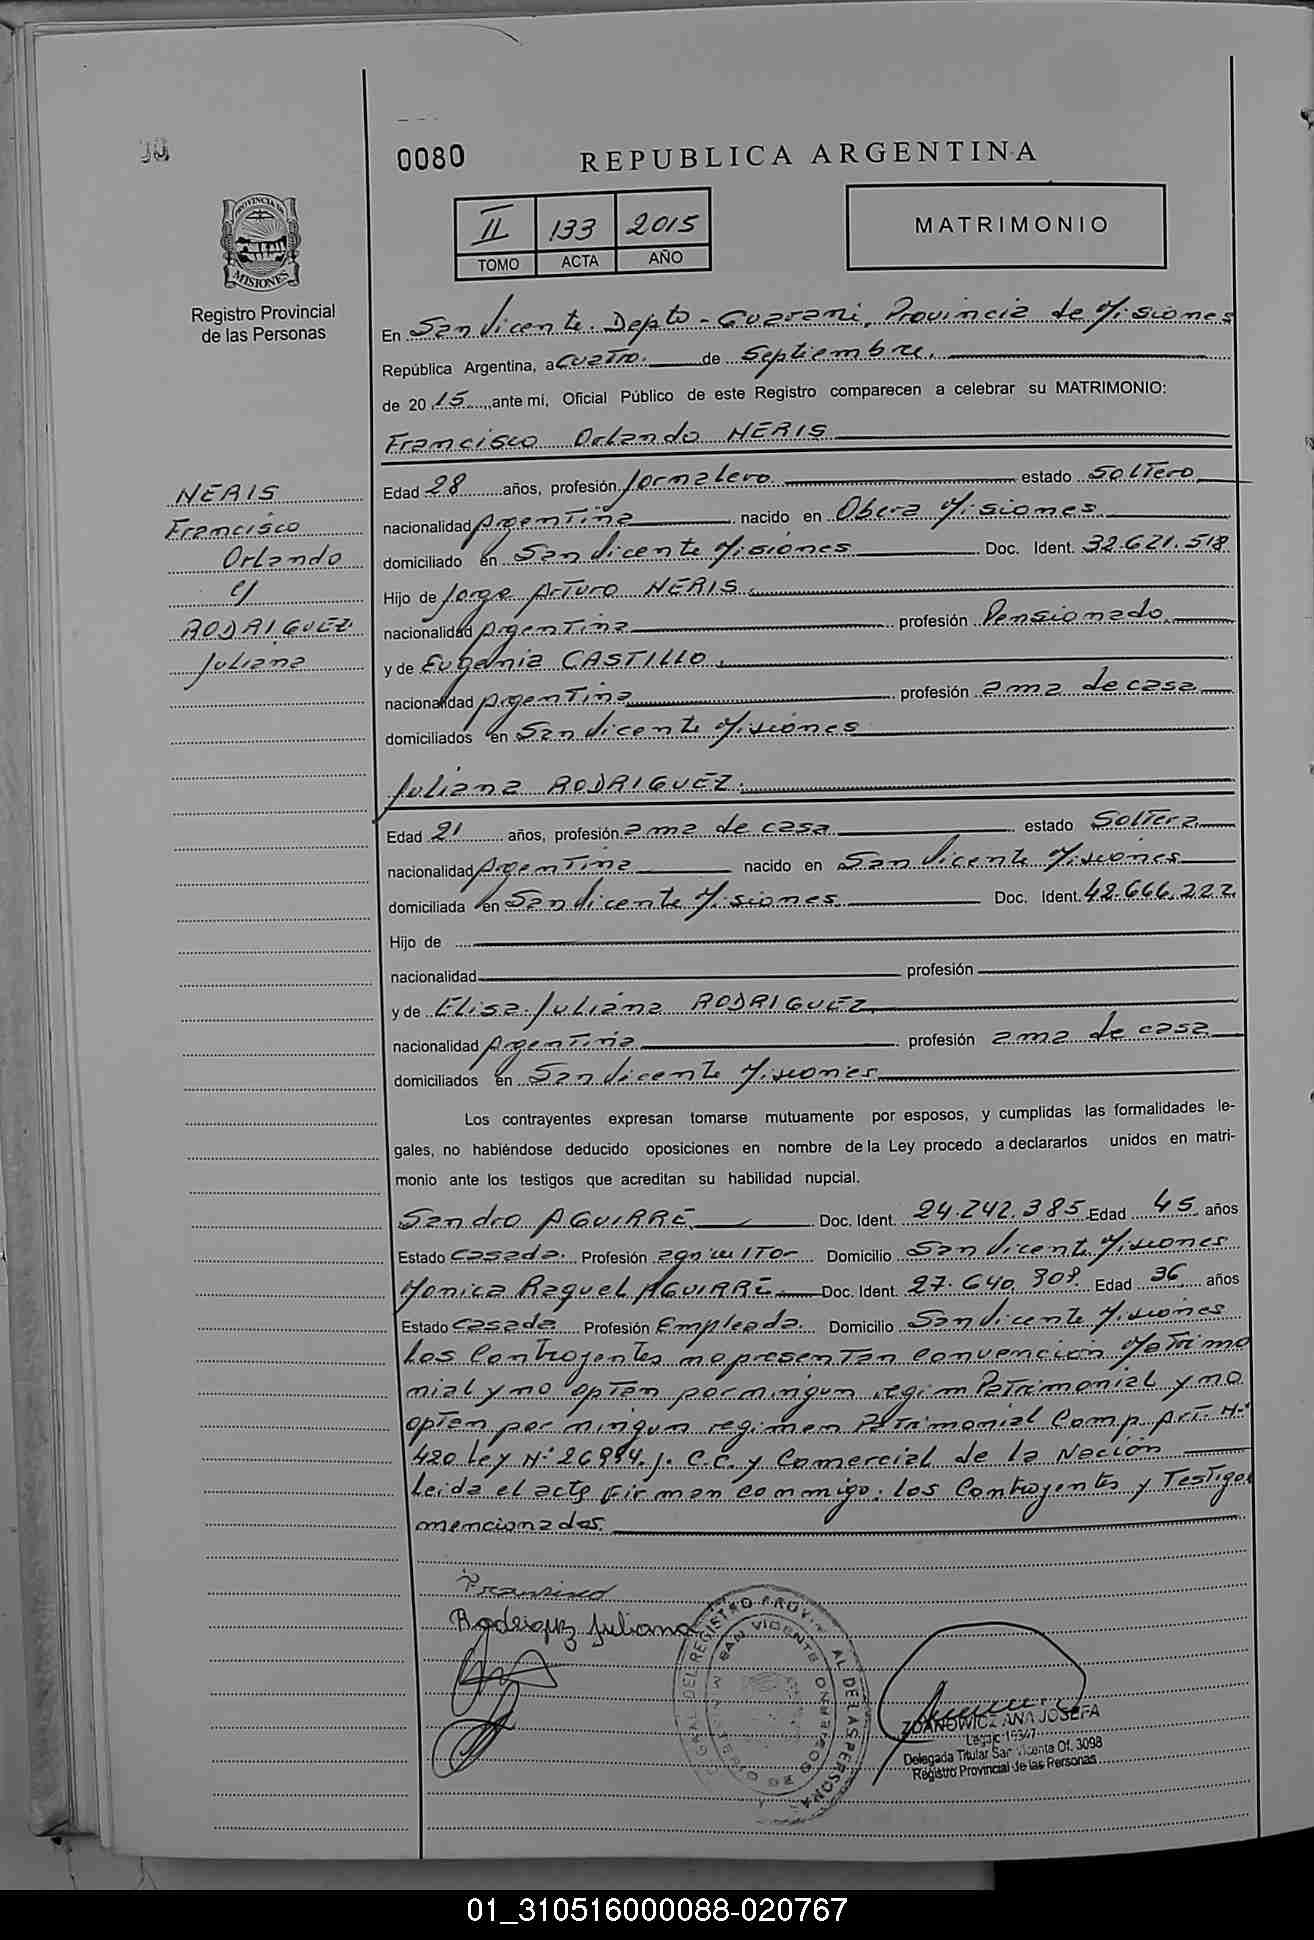 0080
REPUBLICA ARGENTINA
PROVINCIA DE
MISIONES
II 133 2015
TOMO ACTA AÑO
MATRIMONIO
Registro Provincial
de las Personas
En San Vicente. Depto - Guarani, Provincia de Misiones
República Argentina, a Cuatro. de Septiembre.
de 20 15 ,ante mi, Oficial Público de este Registro comparecen a celebrar su MATRIMONIO:
Francisco Orlando NERIS
NERIS
Francisco
Orlando
c/
RODRIGUEZ
Juliana
Edad 28 años, profesión Jornalero estado Soltero
nacionalidad Argentina nacido en Obera Misiones
domiciliado en San Vicente Misiones Doc. Ident. 32.621.518
Hijo de Jorge Arturo NERIS.
nacionalidad Argentina profesión Pensionado.
y de Eugenia CASTILLO.
nacionalidad Argentina profesión ama de casa
domiciliados en San Vicente Misiones
Juliana RODRIGUEZ.
Edad 21 años, profesión ama de casa estado Soltera
nacionalidad Argentina nacido en San Vicente Misiones
domiciliada en San Vicente Misiones. Doc. Ident. 42.666.222.
Hijo de
nacionalidad profesión
y de Elisa Juliana RODRIGUEZ
nacionalidad Argentina profesión ama de casa
domiciliados en San Vicente Misiones
Los contrayentes expresan tomarse mutuamente por esposos, y cumplidas las formalidades le-
gales, no habiéndose deducido oposiciones en nombre de la Ley procedo a declararlos unidos en matri-
monio ante los testigos que acreditan su habilidad nupcial.
Sandro AGUIRRE Doc. Ident. 24.242.385 Edad 45 años
Estado Casada. Profesión agricultor Domicilio San Vicente Misiones
Monica Raquel AGUIRRE Doc. Ident. 27.640.308. Edad 36 años
Estado Casada Profesión Empleada. Domicilio San Vicente Misiones
Los Controyentes no presentan convencion Matrimo
nial y no opten por ningun regim Patrimonial y no
opten por ningun regimen Patrimonial Comp. Art. N:
420 Ley N: 26994. j. C.C. y Comercial de la Nación
leida el acta firman conmigo: los Controyentes y Testigos
mencionados.
Francisco
Rodriguez Juliana
REGISTRO PROVINCIAL DE LAS PERSONAS
SAN VICENTE
ZDANOWICZ ANA JOSEFA
Delegada Titular San Vicente Of. 3098
Registro Provincial de las Personas
01_310516000088-020767